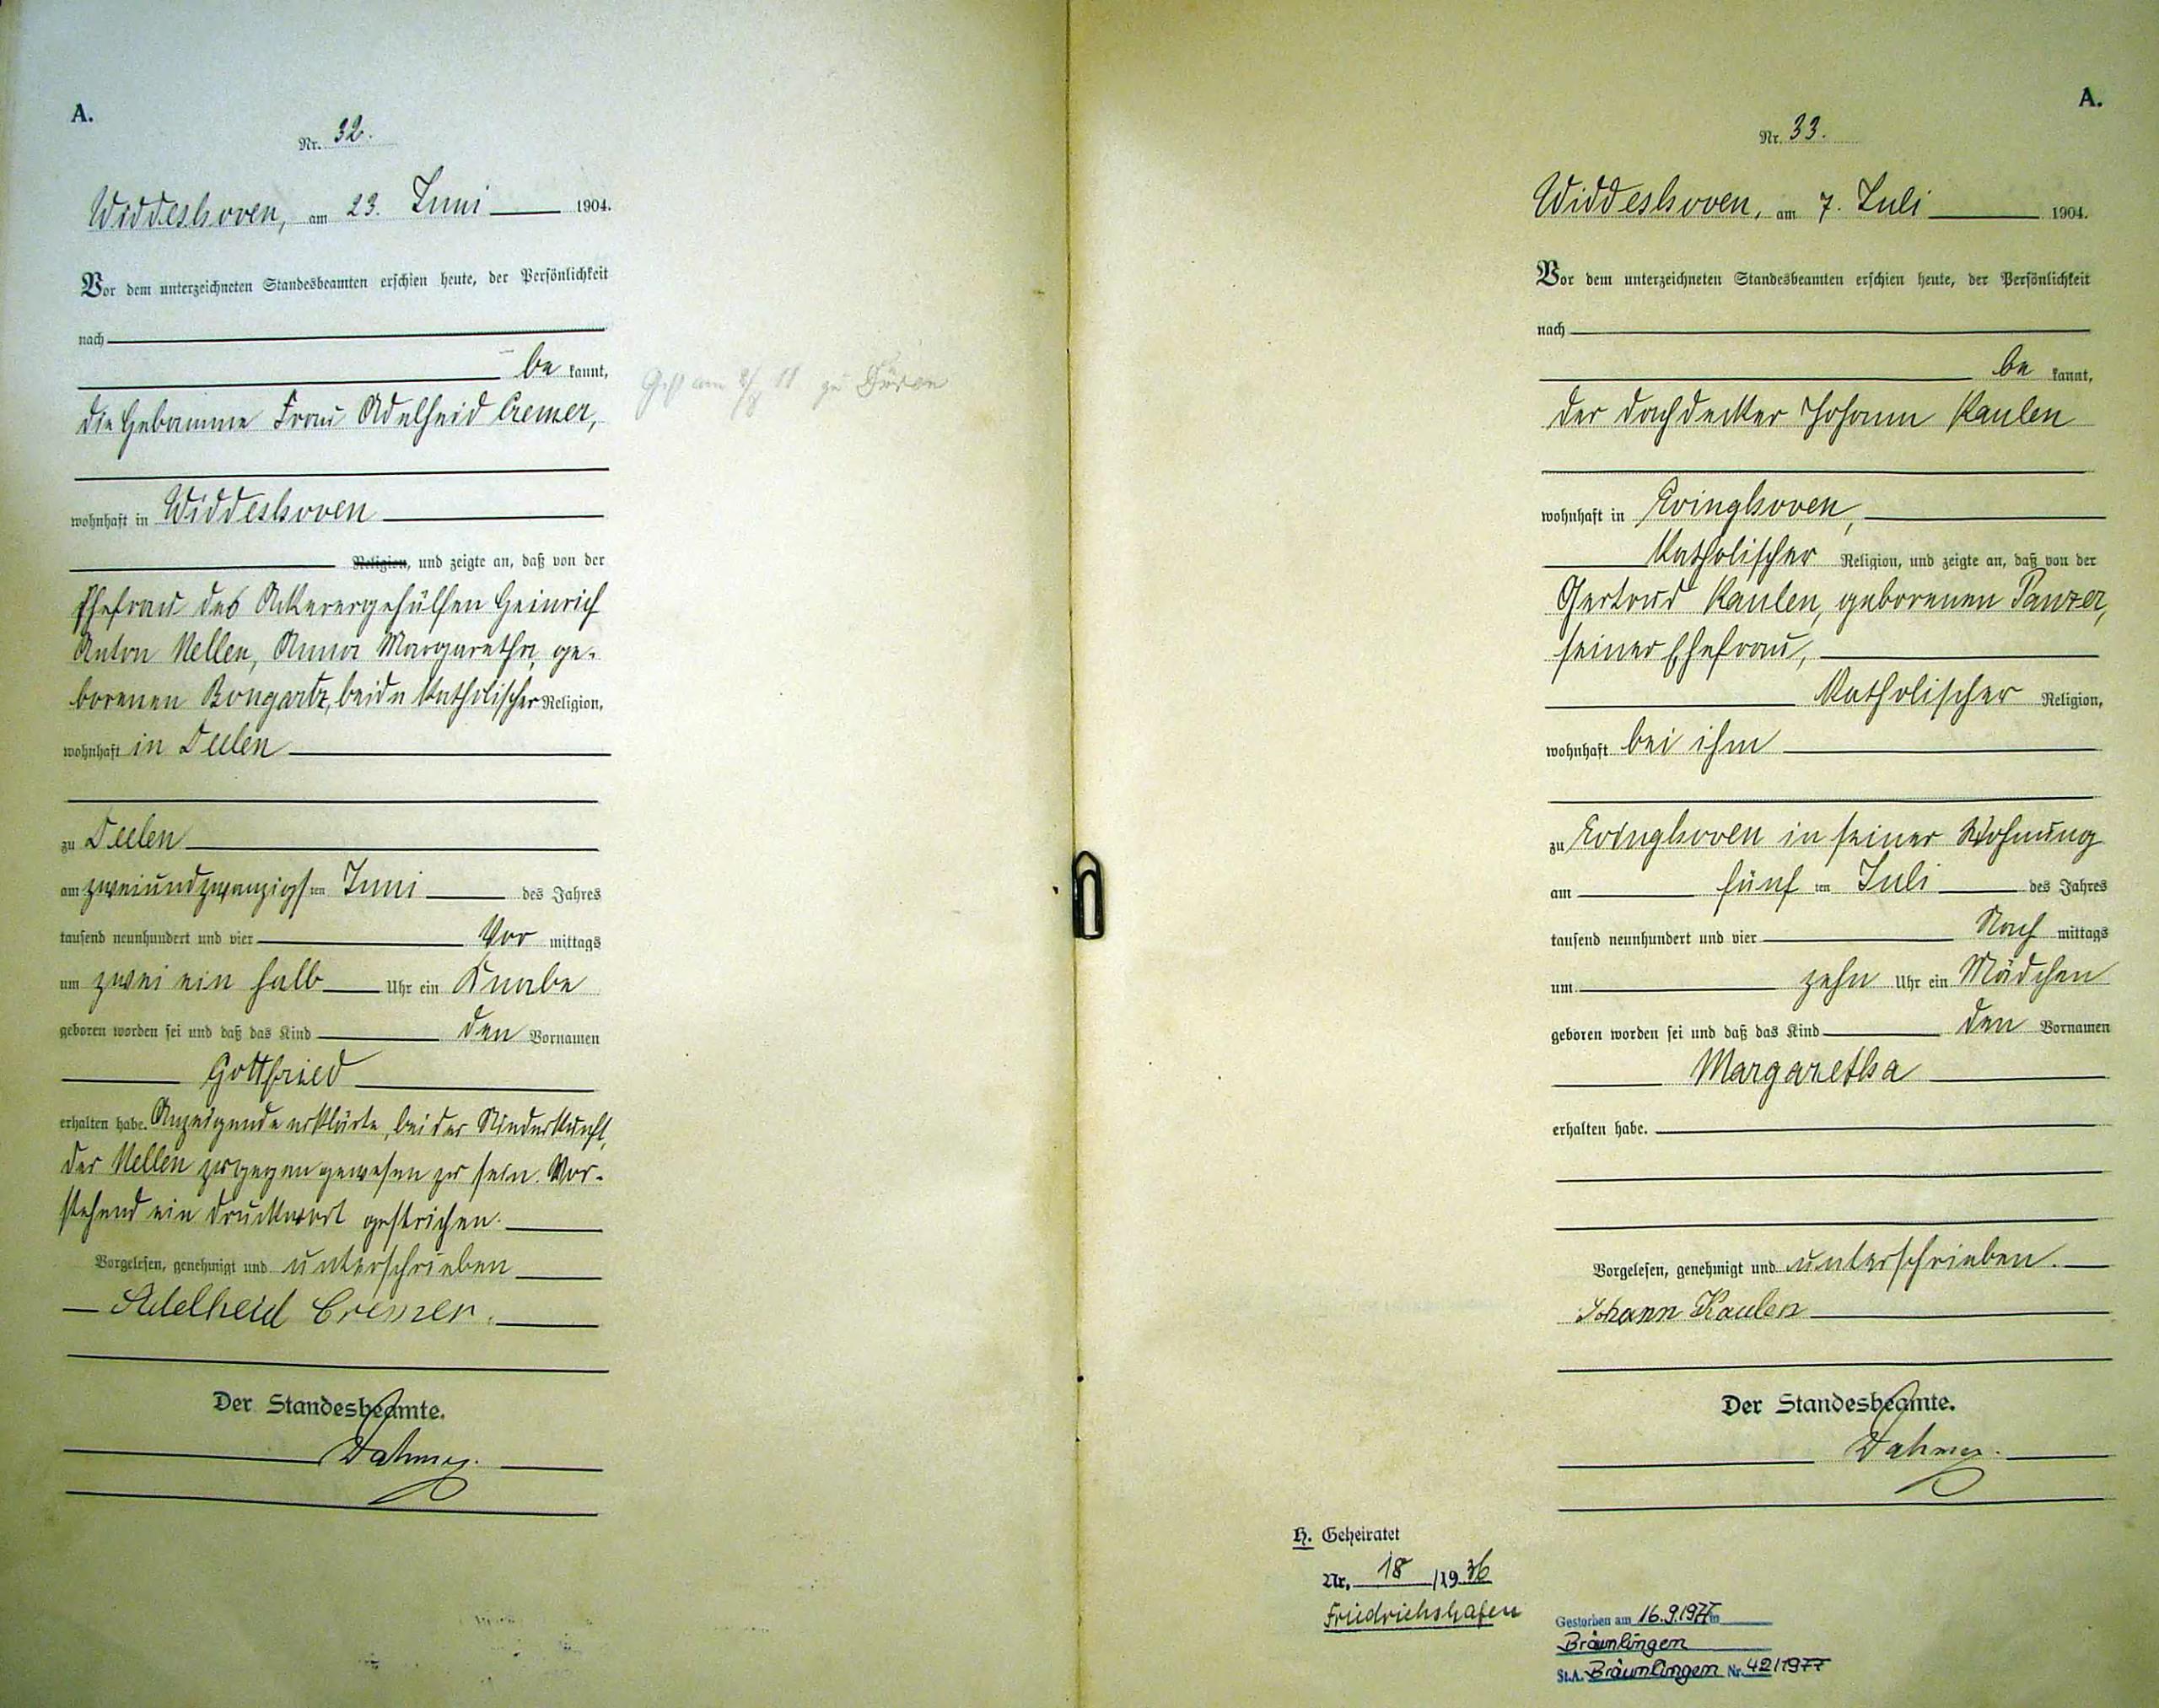 A.
Nr. 32.
Widdeshoven, am 23. Juni 1904.
Vor dem unterzeichneten Standesbeamten erschien heute, der Persönlichkeit
nach
be kannt,
die Hebamme Frau Adelheid Cremer,
wohnhaft in Widdeshoven
Religion, und zeigte an, daß von der
Ehefrau des Ackerergehülfen Heinrich
Anton Nellen, Anna Margaretha, ge-
borenen Bongartz, beide katholischer Religion,
wohnhaft in Deelen
zu Deelen
am zweiundzwanzigsten Juni des Jahres
tausend neunhundert und vier Vor mittags
um zwei ein halb Uhr ein Knabe
geboren worden sei und daß das Kind den Vornamen
Gottfried
erhalten habe. Anzeigende erklärte, bei der Niederkunft
der Nellen zugegen gewesen zu sein. Vor-
stehend ein Druckwort gestrichen.
Vorgelesen, genehmigt und unterschrieben
Adelheid Cremer.
Der Standesbeamte.
Dahmen.
Gest am zu
A.
Nr. 33.
Widdeshoven, am 7. Juli 1904.
Vor dem unterzeichneten Standesbeamten erschien heute, der Persönlichkeit
nach
be kannt,
der Dachdecker Johann Kaulen
wohnhaft in Evinghoven,
katholischer Religion, und zeigte an, daß von der
Gertrud Kaulen, geborenen Panzer,
seiner Ehefrau,
katholischer Religion,
wohnhaft bei ihm
zu Evinghoven in seiner Wohnung
am fünf ten Juli des Jahres
tausend neunhundert und vier Nach mittags
um zehn Uhr ein Mädchen
geboren worden sei und daß das Kind den Vornamen
Margaretha
erhalten habe.
Vorgelesen, genehmigt und unterschrieben.
Johann Kaulen
Der Standesbeamte.
Dahmen.
H. Geheiratet
Nr. 18 /1936
Friedrichshafen
Gestorben am 16.9.1977 in
Bräunlingen
St.A. Bräunlingen Nr. 42/1977